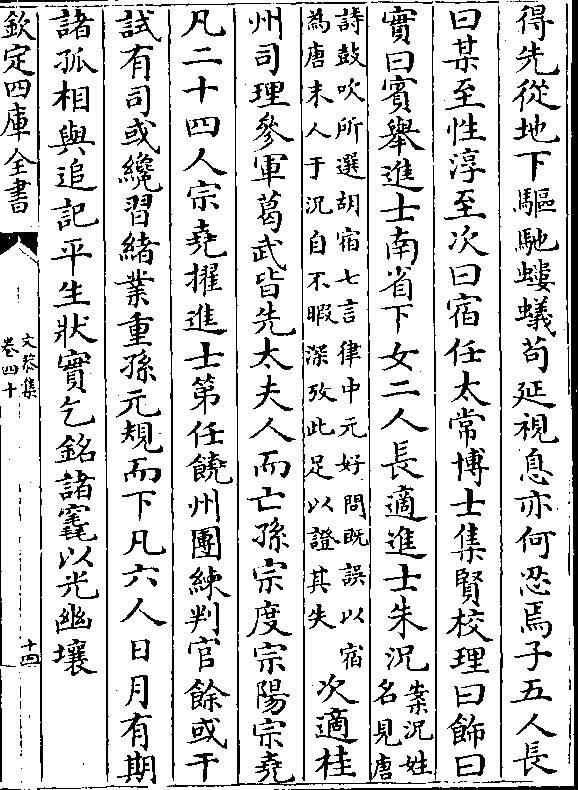 得先從地下驅馳螻蟻苟延視息亦何忍焉子五人長
曰某至性淳至次曰宿任太常博士集賢校理曰飾曰
實曰賓舉進士南省下女二人長適進士朱況案況姓名見唐
詩鼓吹所選胡宿七言律中元好問既誤以宿
為唐末人于況自不暇深攷此足以證其失
次適桂
州司理參軍葛武皆先太夫人而亡孫宗度宗陽宗堯
凡二十四人宗堯擢進士第任饒州團練判官餘或干
試有司或纔習緒業重孫元規而下凡六人日月有期
諸孤相與追記平生狀實乞銘諸窀以光幽壤
欽定四庫全書
文恭集
卷四十
十四